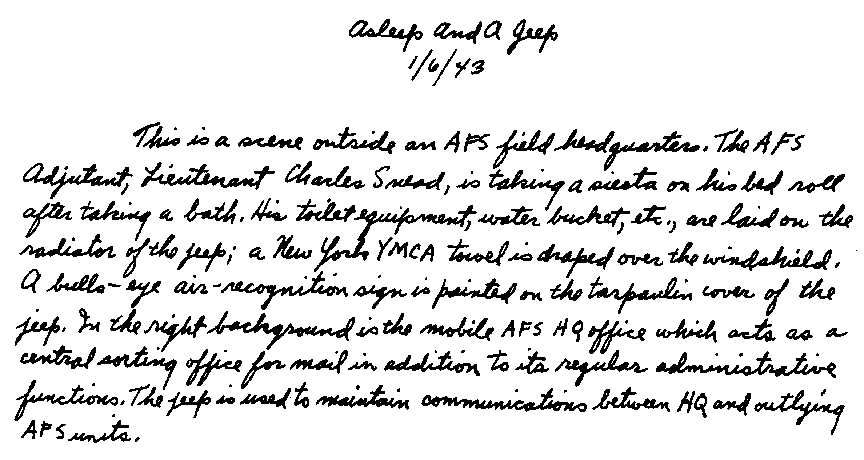 Asleep And A Jeep
1/6/43
This is a scene outside an AFS field headquarters. The AFS
Adjutant, Lieutenant Charles Snead, is taking a siesta on his bed roll
after taking a bath. His toilet equipment, water bucket, etc., are laid on the
radiator of the jeep; a New York YMCA towel is draped over the windshield.
A bulls-eye air-recognition sign is painted on the tarpaulin cover of the
jeep. In the right background is the mobile AFS HQ office which acts as a
central sorting office for mail in addition to its regular administrative
functions. The jeep is used to maintain communications between HQ and outlying
AFS units.